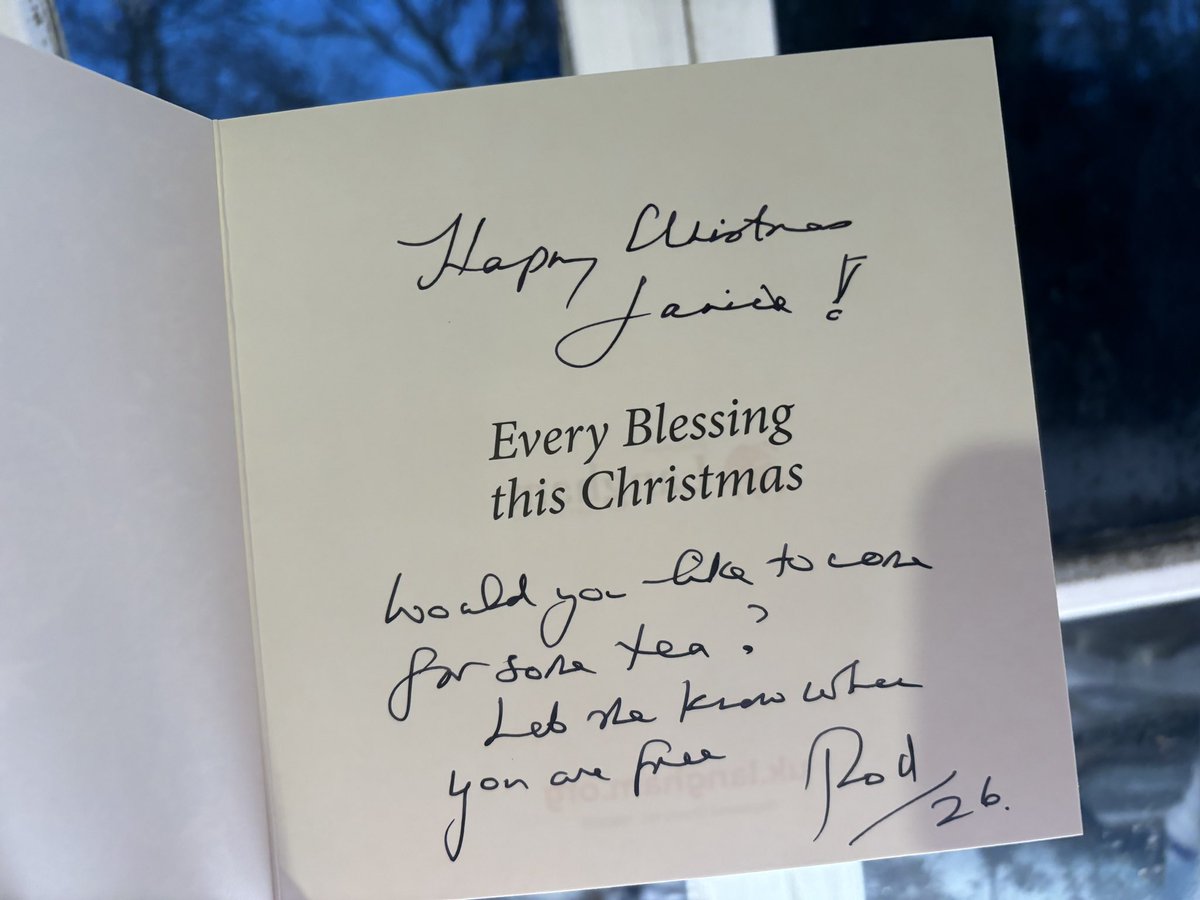 Happy Christmas
Janice !
Every Blessing
this Christmas
Would you like to come
for some tea ?
Let me know when
you are free Rod
/26.
uk.langham.org